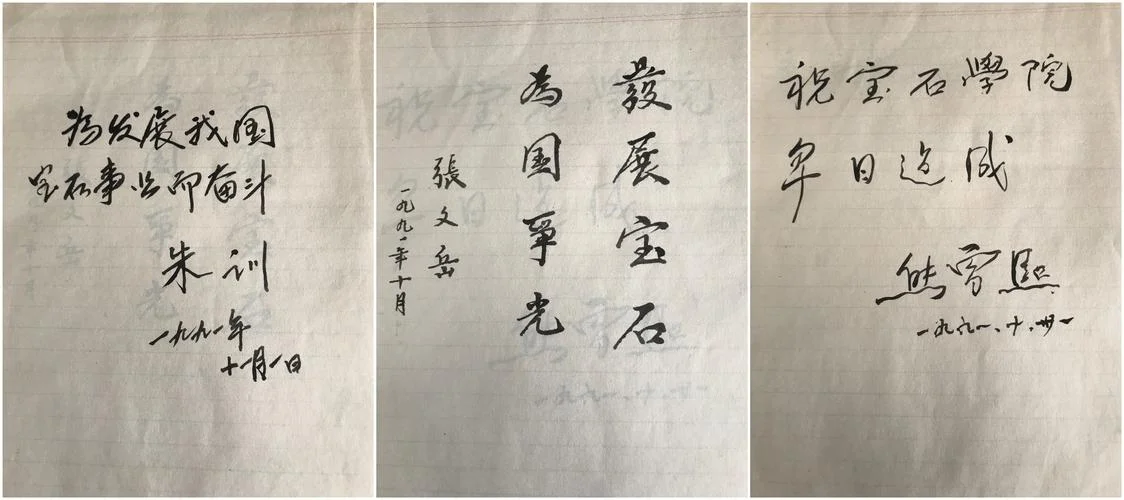 为发展我国
宝石事业而奋斗
朱训
一九九一年
十一月一日
發展宝石
為国爭光
張文岳
一九九一年十月
祝宝石學院
早日迠成
一九九一、十、卅一